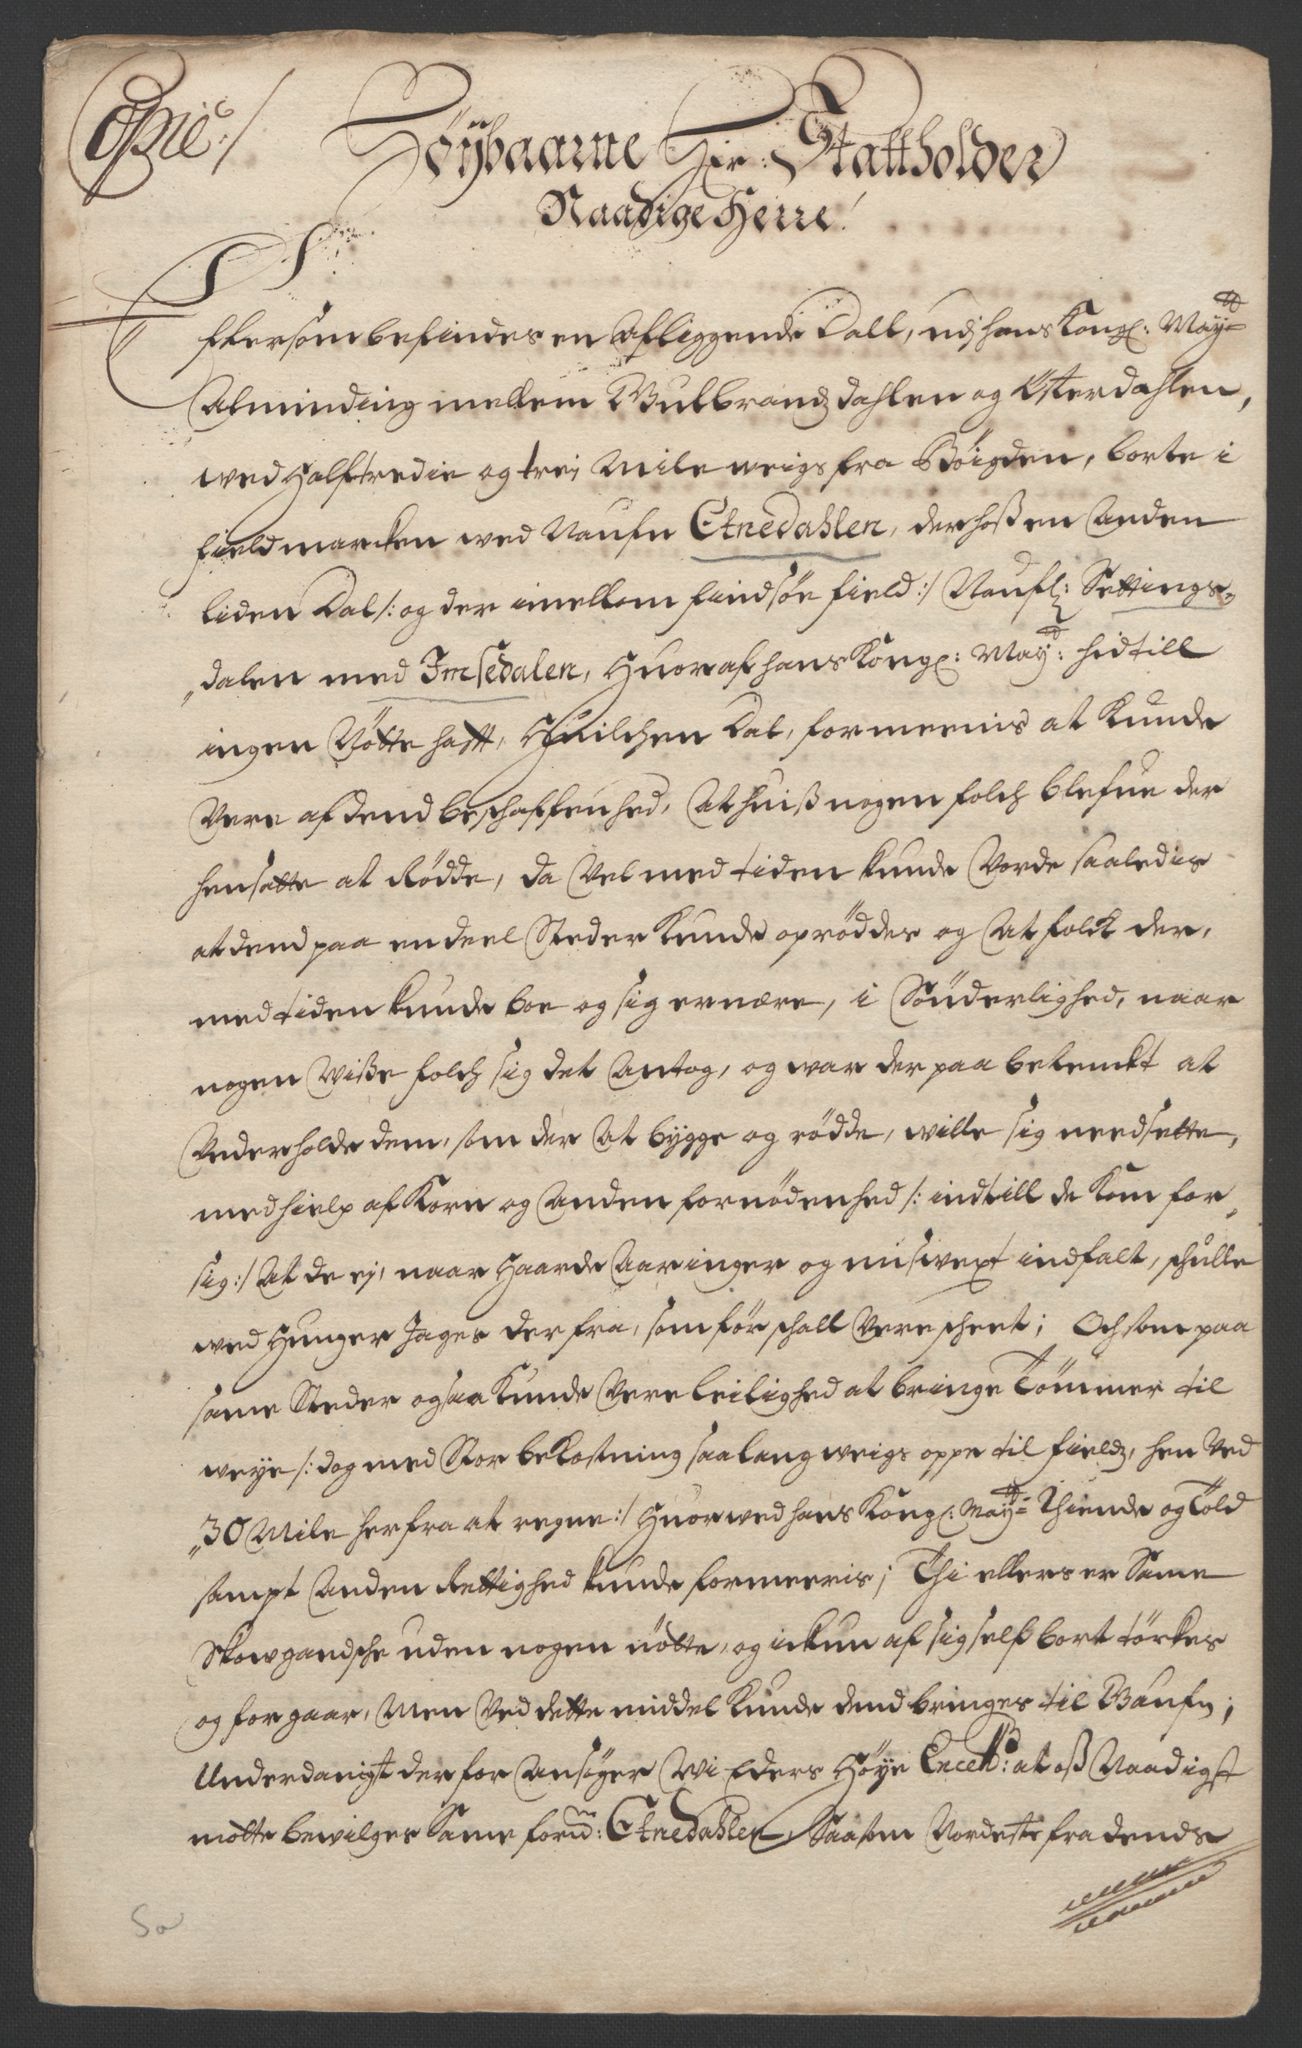 Copie ./
Høÿbaarne Her: Statholder
Naadige Herre!
Eftersom befindes en Afliggende Dall, udj hans Kongl: Maÿtz
Alminding mellem Gulbrandzdahlen og Østerdahlen,
wed Halftredie og trej Mile weigs fra Bøigden, borte i
fieldmarcken wed Naufn Etnedahlen, der hoß en Anden
liden Dal /: og der imellom findsøe field :/ Naufl: Settings-
"dalen med Imsedalen, Huoraf hans Kongl: Maÿtt: hidtill
ingen Nøtte hafft, Huilchen Dal, formeenis at Kunde
Vere af dend beschaffenhed, At huiß nogen folch blefue der
hensatte at Rødde, da Vel med tiden kunde Vorde saaledis
at dend paa en deel Steder Kunde oprøddes og At folk der,
med tiden kunde boe og sig ernære, i Sønderlighed, naar
nogen Wiße folch sig det Antog, og war der paa betenckt at
Underholde dem, som der At bygge og rødde, wille sig needsette,
med hielp af Korn og Anden fornødenhed /: indtill de Kom for,
sig :/ At de ej, naar Haarde Aaringer og miswext indfalt, schulle
wed Hunger Jages der fra, som før schall Vere scheet; Och som paa
same Steder ogsaa Kunde Vere leilighed at bringe Tømmer til
weye /: dog med Stor bekostning saa lang weigs oppe til fieldz, hen Ved
"30 Mile herfra at regne :/ Huorwed hans Kongl: Maÿtz Thiende og Told
sampt Anden Rettighed kunde formeeris; Thi ellers er Same
Skow gandsche uden nogen nøtte, og ickun af sig self bort tørkes
og forgaar, Men Ved dette middel Kunde dend bringes til Gaufn;
Underdanigst derfor Ansøger Wi Eders Høye Excell: at oß Naadigst
motte bewilges Same formte: Etnedahlen, Saasom Nordeste fra dends